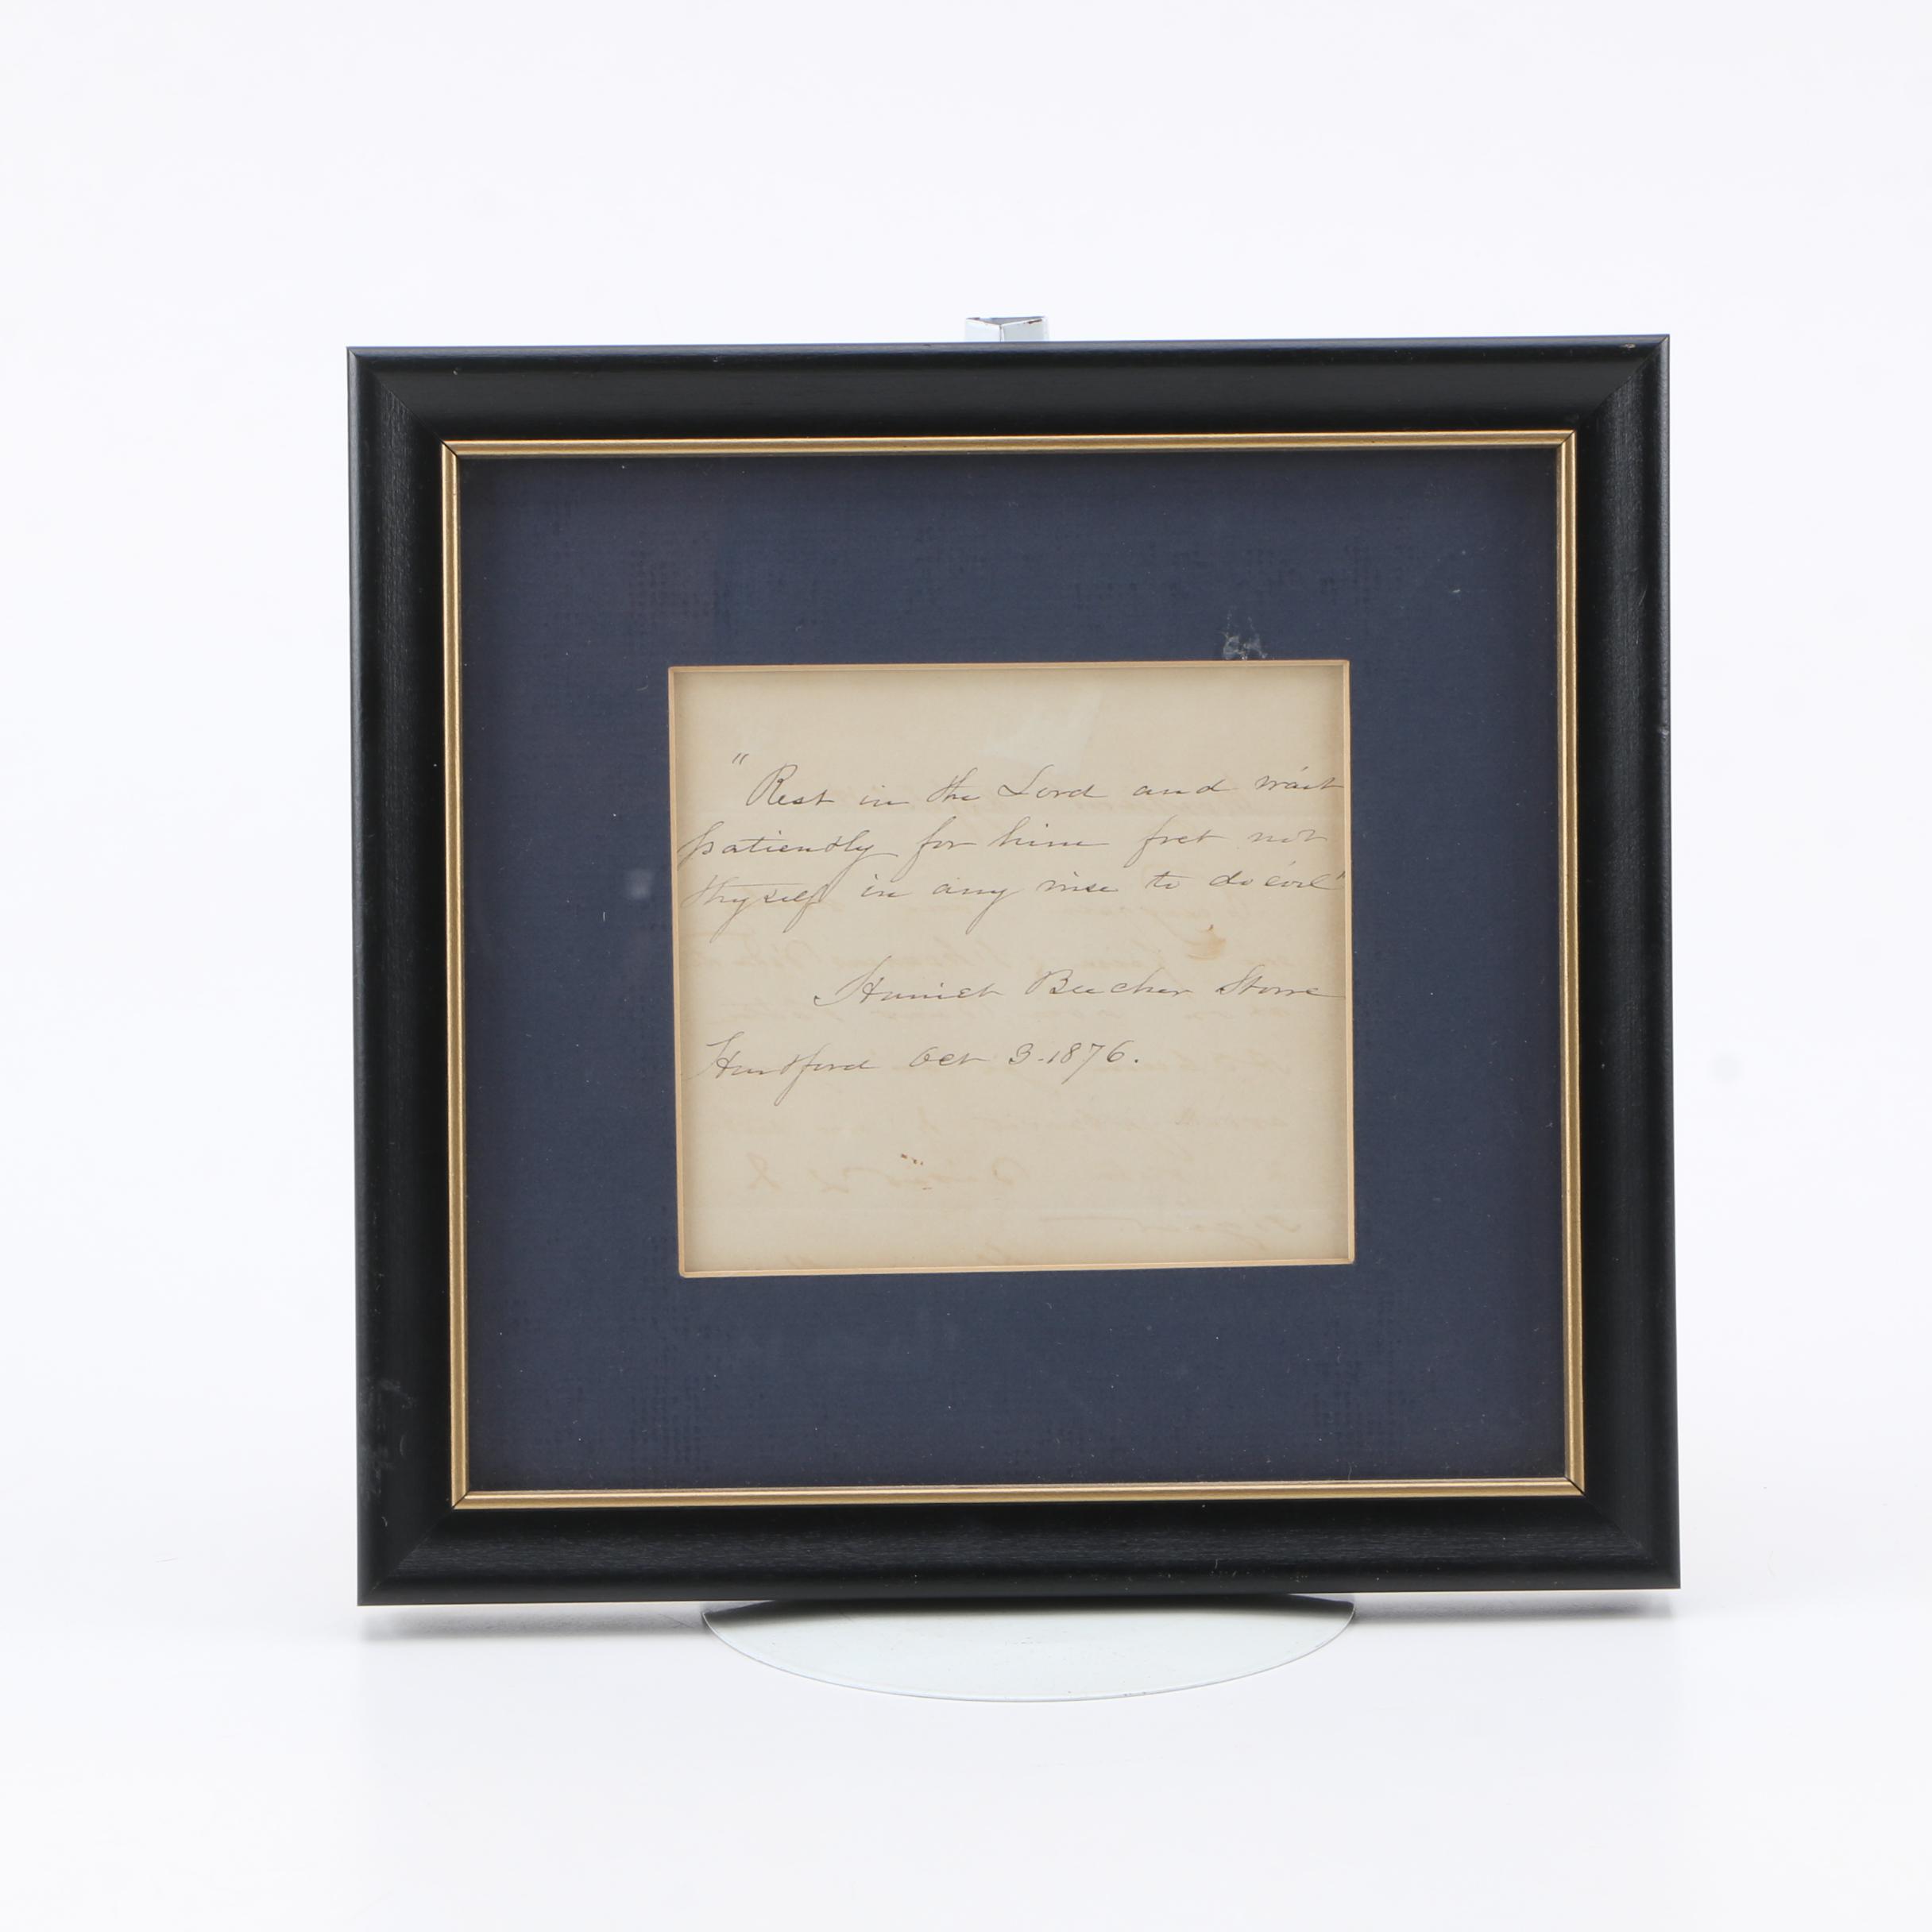 "Rest in the Lord and wait
patiently for him fret not
thyself in any wise to do evil"
Harriet Beecher Stowe
Hartford Oct 3-1876.